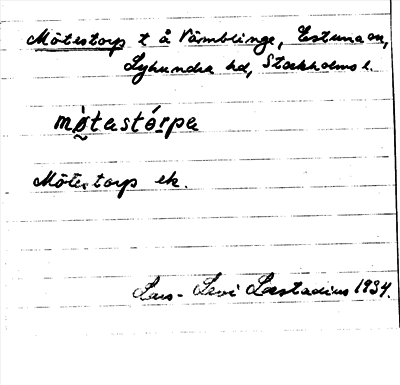 Mötestorp t å Våmblinge, Estuna sn,
Lyhundra hd, Stockholms l.
mö̀tastórpa
Mötestorp ek.
Lars-Levi Læstadius 1934.